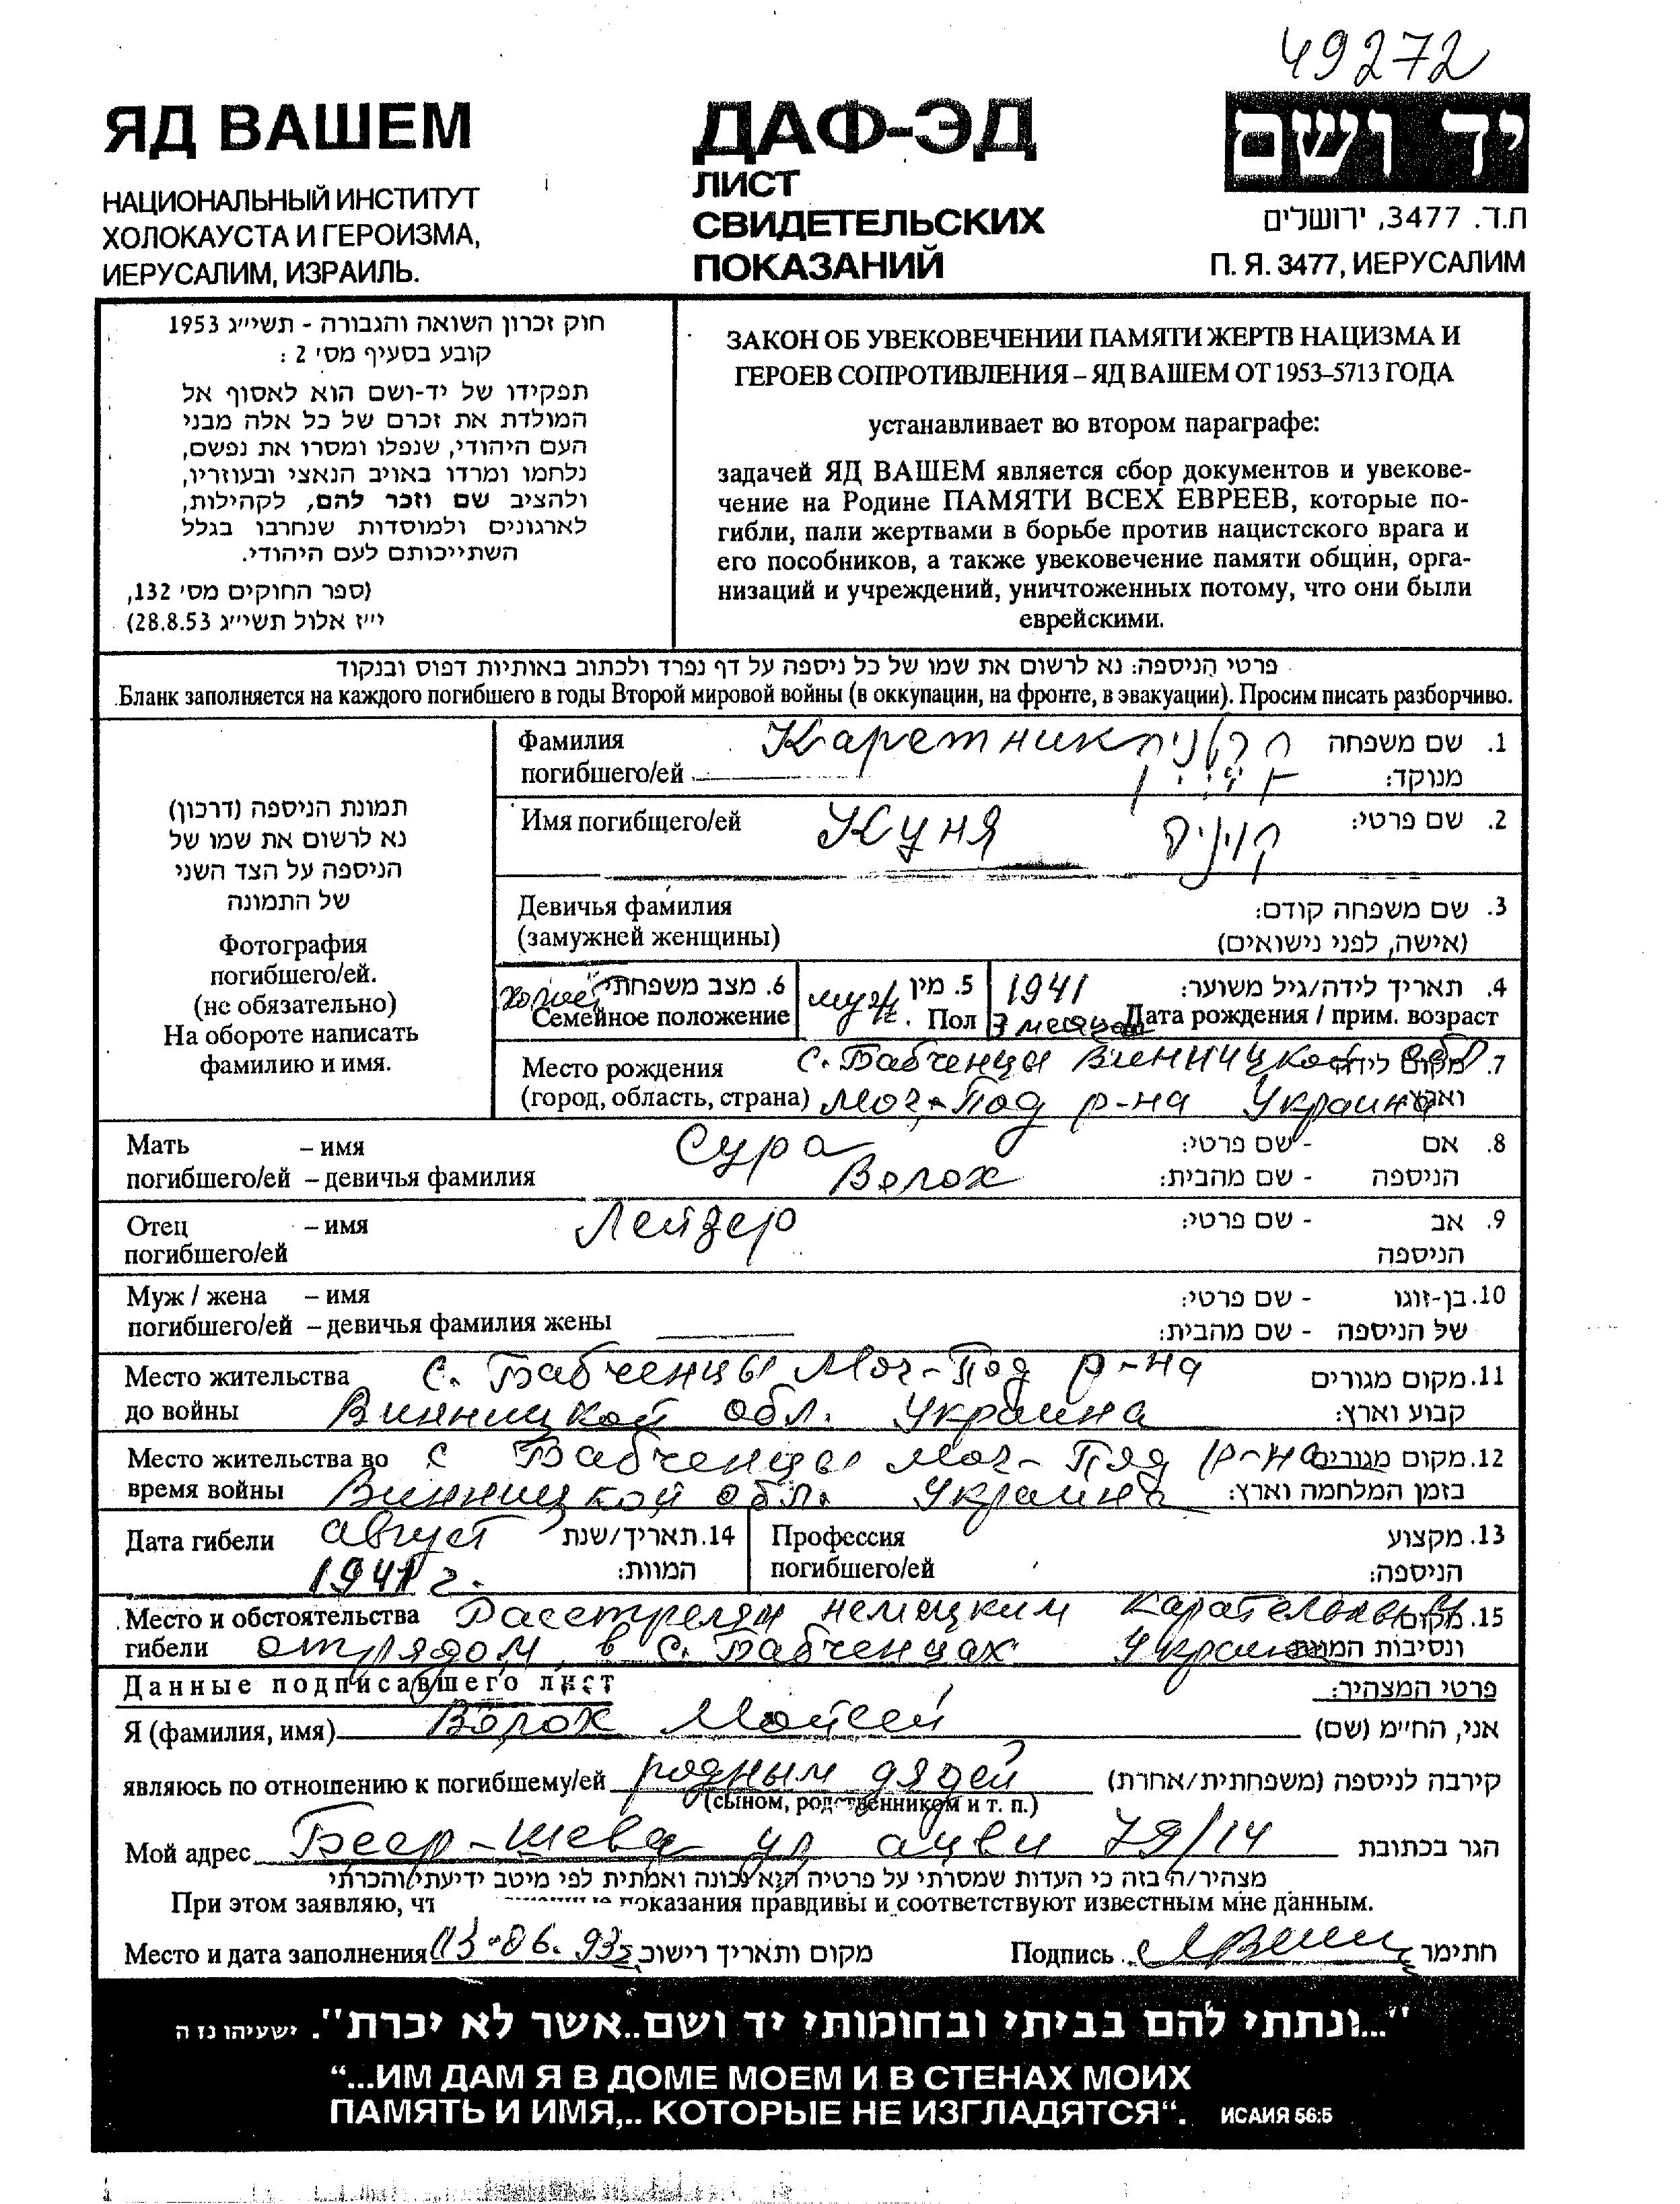 49272
ЯД ВАШЕМ
НАЦИОНАЛЬНЫЙ ИНСТИТУТ
ХОЛОКАУСТА И ГЕРОИЗМА,
ИЕРУСАЛИМ, ИЗРАИЛЬ.
ДАФ-ЭД
ЛИСТ
СВИДЕТЕЛЬСКИХ
ПОКАЗАНИЙ
יד ושם
ת.ד. 3477, ירושלים
П. Я. 3477, ИЕРУСАЛИМ
חוק זכרון השואה והגבורה - תשי״ג 1953
קובע בסעיף מס׳ 2 :
תפקידו של יד-ושם הוא לאסוף אל
המולדת את זכרם של כל אלה מבני
העם היהודי, שנפלו ומסרו את נפשם,
נלחמו ומרדו באויב הנאצי ובעוזריו,
ולהציב שם וזכר להם, לקהילות,
לארגונים ולמוסדות שנחרבו בגלל
השתייכותם לעם היהודי.
(ספר החוקים מס׳ 132,
י״ז אלול תשי״ג 28.8.53)
ЗАКОН ОБ УВЕКОВЕЧЕНИИ ПАМЯТИ ЖЕРТВ НАЦИЗМА И
ГЕРОЕВ СОПРОТИВЛЕНИЯ – ЯД ВАШЕМ ОТ 1953–5713 ГОДА
устанавливает во втором параграфе:
задачей ЯД ВАШЕМ является сбор документов и увекове-
чение на Родине ПАМЯТИ ВСЕХ ЕВРЕЕВ, которые по-
гибли, пали жертвами в борьбе против нацистского врага и
его пособников, а также увековечение памяти общин, орга-
низаций и учреждений, уничтоженных потому, что они были
еврейскими.
פרטי הניספה: נא לרשום את שמו של כל ניספה על דף נפרד ולכתוב באותיות דפוס ובנקוד
Бланк заполняется на каждого погибшего в годы Второй мировой войны (в оккупации, на фронте, в эвакуации). Просим писать разборчиво.
תמונת הניספה (דרכון)
נא לרשום את שמו של
הניספה על הצד השני
של התמונה
Фотография
погибшего/ей.
(не обязательно)
На обороте написать
фамилию и имя.
Фамилия Каретник קרטניק 1. שם משפחה
погибшего/ей מנוקד:
Имя погибщего/ей Куня קוניה 2. שם פרטי:
Девичья фамилия 3. שם משפחה קודם:
(замужней женщины) (אישה, לפני נישואים)
6. מצב משפחתי 5. מין 1941 4. תאריך לידה/גיל משוער:
Семейное положение муж. Пол 7 месяцев Дата рождения / прим. возраст
Место рождения с. Бабченцы Винницкой обл 7. מקום לידה
(город, область, страна) Мог-Под р-на Украина וארץ:
Мать – имя Сура - שם פרטי: 8. אם
погибшего/ей – девичья фамилия Волох - שם מהבית: הניספה
Отец – имя Лейзер - שם פרטי: 9. אב
погибшего/ей הניספה
Муж / жена – имя - שם פרטי: 10. בן-זוגו
погибшего/ей – девичья фамилия жены - שם מהבית: של הניספה
Место жительства с. Бабченцы Мог-Под р-на 11. מקום מגורים
до войны Винницкой обл. Украина קבוע וארץ:
Место жительства во с Бабченцы Мог-Под р-на 12. מקום מגורים
время войны Винницкой обл. Украина בזמן המלחמה וארץ:
Дата гибели август 14. תאריך/שנת Профессия 13. מקצוע
1941 г. המוות: погибшего/ей הניספה:
Место и обстоятельства Расстрелян немецким карательным 15. מקום
гибели отрядом в с. Бабченцах Украина ונסיבות המוות
Данные подписавшего лист פרטי המצהיר:
Я (фамилия, имя) Волох Мойсей אני, החי״מ (שם)
являюсь по отношению к погибшему/ей родным дядей קירבה לניספה (משפחתית/אחרת)
(сыном, родственником и т. п.)
Мой адрес Беер-шева ул ацви 79/14 הגר בכתובת
מצהיר/ה בזה כי העדות שמסרתי על פרטיה היא נכונה ואמתית לפי מיטב ידיעתי והכרתי
При этом заявляю, чт показания правдивы и соответствуют известным мне данным.
Место и дата заполнения 13-06.93 מקום ותאריך רישום Подпись חתימה
"...ונתתי להם בביתי ובחומותי יד ושם..אשר לא יכרת". ישעיהו נז ה
“...ИМ ДАМ Я В ДОМЕ МОЕМ И В СТЕНАХ МОИХ
ПАМЯТЬ И ИМЯ,.. КОТОРЫЕ НЕ ИЗГЛАДЯТСЯ“. ИСАИЯ 56:5